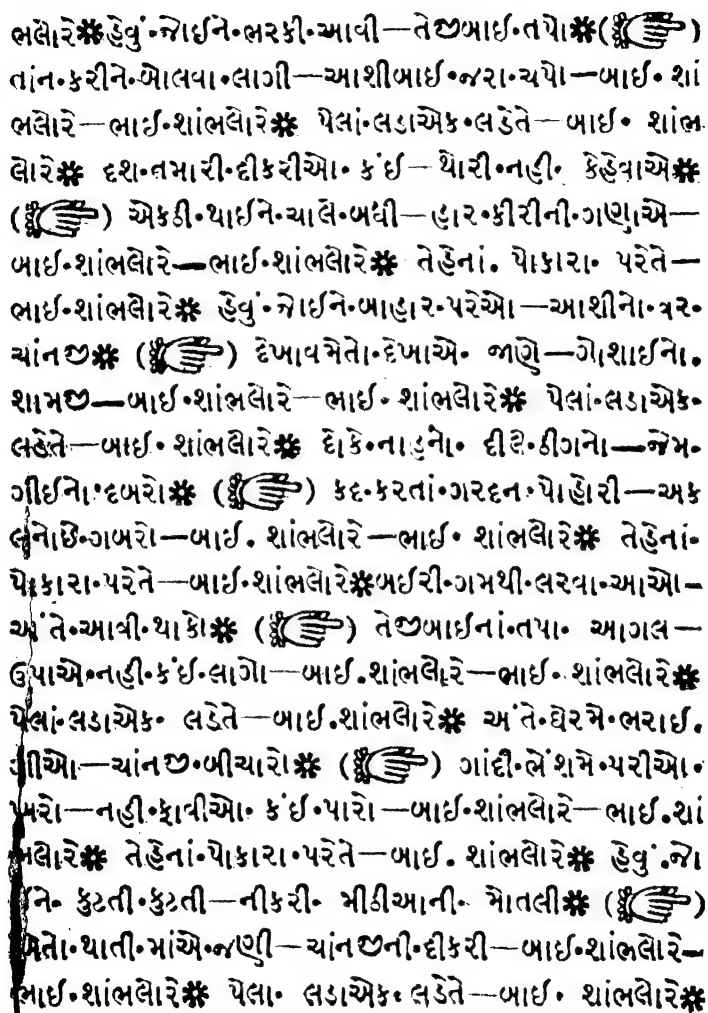 ભલોરે✽હેવું·જોઈને·ભરકી·આવી—તેજીબાઈ·તપો✽(☞)
તાંન·કરીને·બોલવા·લાગી—આશીબાઈ·જરા·ચપો—બાઈ·શાં
ભલોરે—ભાઈ·શાંભલોરે✽ પેલાં·લડાએક·લડેતે—બાઈ· શાંભ
લોરે✽ દશ·તમારી·દીકરીઓ· કંઈ—થોરી·નહી· કેહેવાએ✽
(☞) એકઠી·થાઈને·ચાલે·બધી—હાર·કીરીની·ગણાએ—
બાઈ·શાંભલોરે—ભાઈ·શાંભલોરે✽ તેહેનાં. પોકારા· પરેતે—
ભાઈ·શાંભલોરે✽ હેવું·જોઈને·બાહાર·પરેઓ—આશીનો·વર·
ચાંનજી✽ (☞) દેખાવમેતો·દેખાએ· જાણે—ગોશાઈનો.
શામજી—બાઈ·શાંભલોરે—ભાઈ· શાંભલોરે✽ પેલાં·લડાએક·
લડેતે—બાઈ· શાંભલોરે✽ દોકે·નાહનો· દીલે·ઠીગનો—જેમ·
ગીઈનો·દબરો✽ (☞) કદ·કરતાં·ગરદન·પોહોરી—અક
લનોછે·ગબરો—બાઈ. શાંભલોરે—ભાઈ· શાંભલોરે✽ તેહેનાં·
પોકારા·પરેતે—બાઈ·શાંભલોરે✽બઈરી·ગમથી·લરવા·આઓ—
અંતે·આવી·થાકો✽ (☞) તેજીબાઈનાં·તપા· આગલ—
ઉપાએ·નહી·કંઈ·લાગો—બાઈ.શાંભલોરે—ભાઈ· શાંભલોરે✽
પેલાં·લડાએક· લડેતે—બાઈ.શાંભલોરે✽ અંતે·ઘેરમે·ભરાઈ.
ગીઓ—ચાંનજી·બીચારો✽ (☞) ગાંદી·ભેંશમે·પરીઓ·
ખરો—નહી·ફાવીઓ· કંઈ·પારો—બાઈ·શાંભલોરે—ભાઈ.શાં
ભલોરે✽ તેહેનાં·પોકારા·પરેતે—બાઈ. શાંભલોરે✽ હેવું.જો
ઈને· કુટતી·કુટતી—નીકરી· મીઠીઆની· મોતલી✽ (☞)
થાતી·માંએ·જણી—ચાંનજીની·દીકરી—બાઈ·શાંભલોરે—
ભાઈ·શાંભલોરે✽ પેલા· લડાએક· લડેતે—બાઈ· શાંભલોરે✽